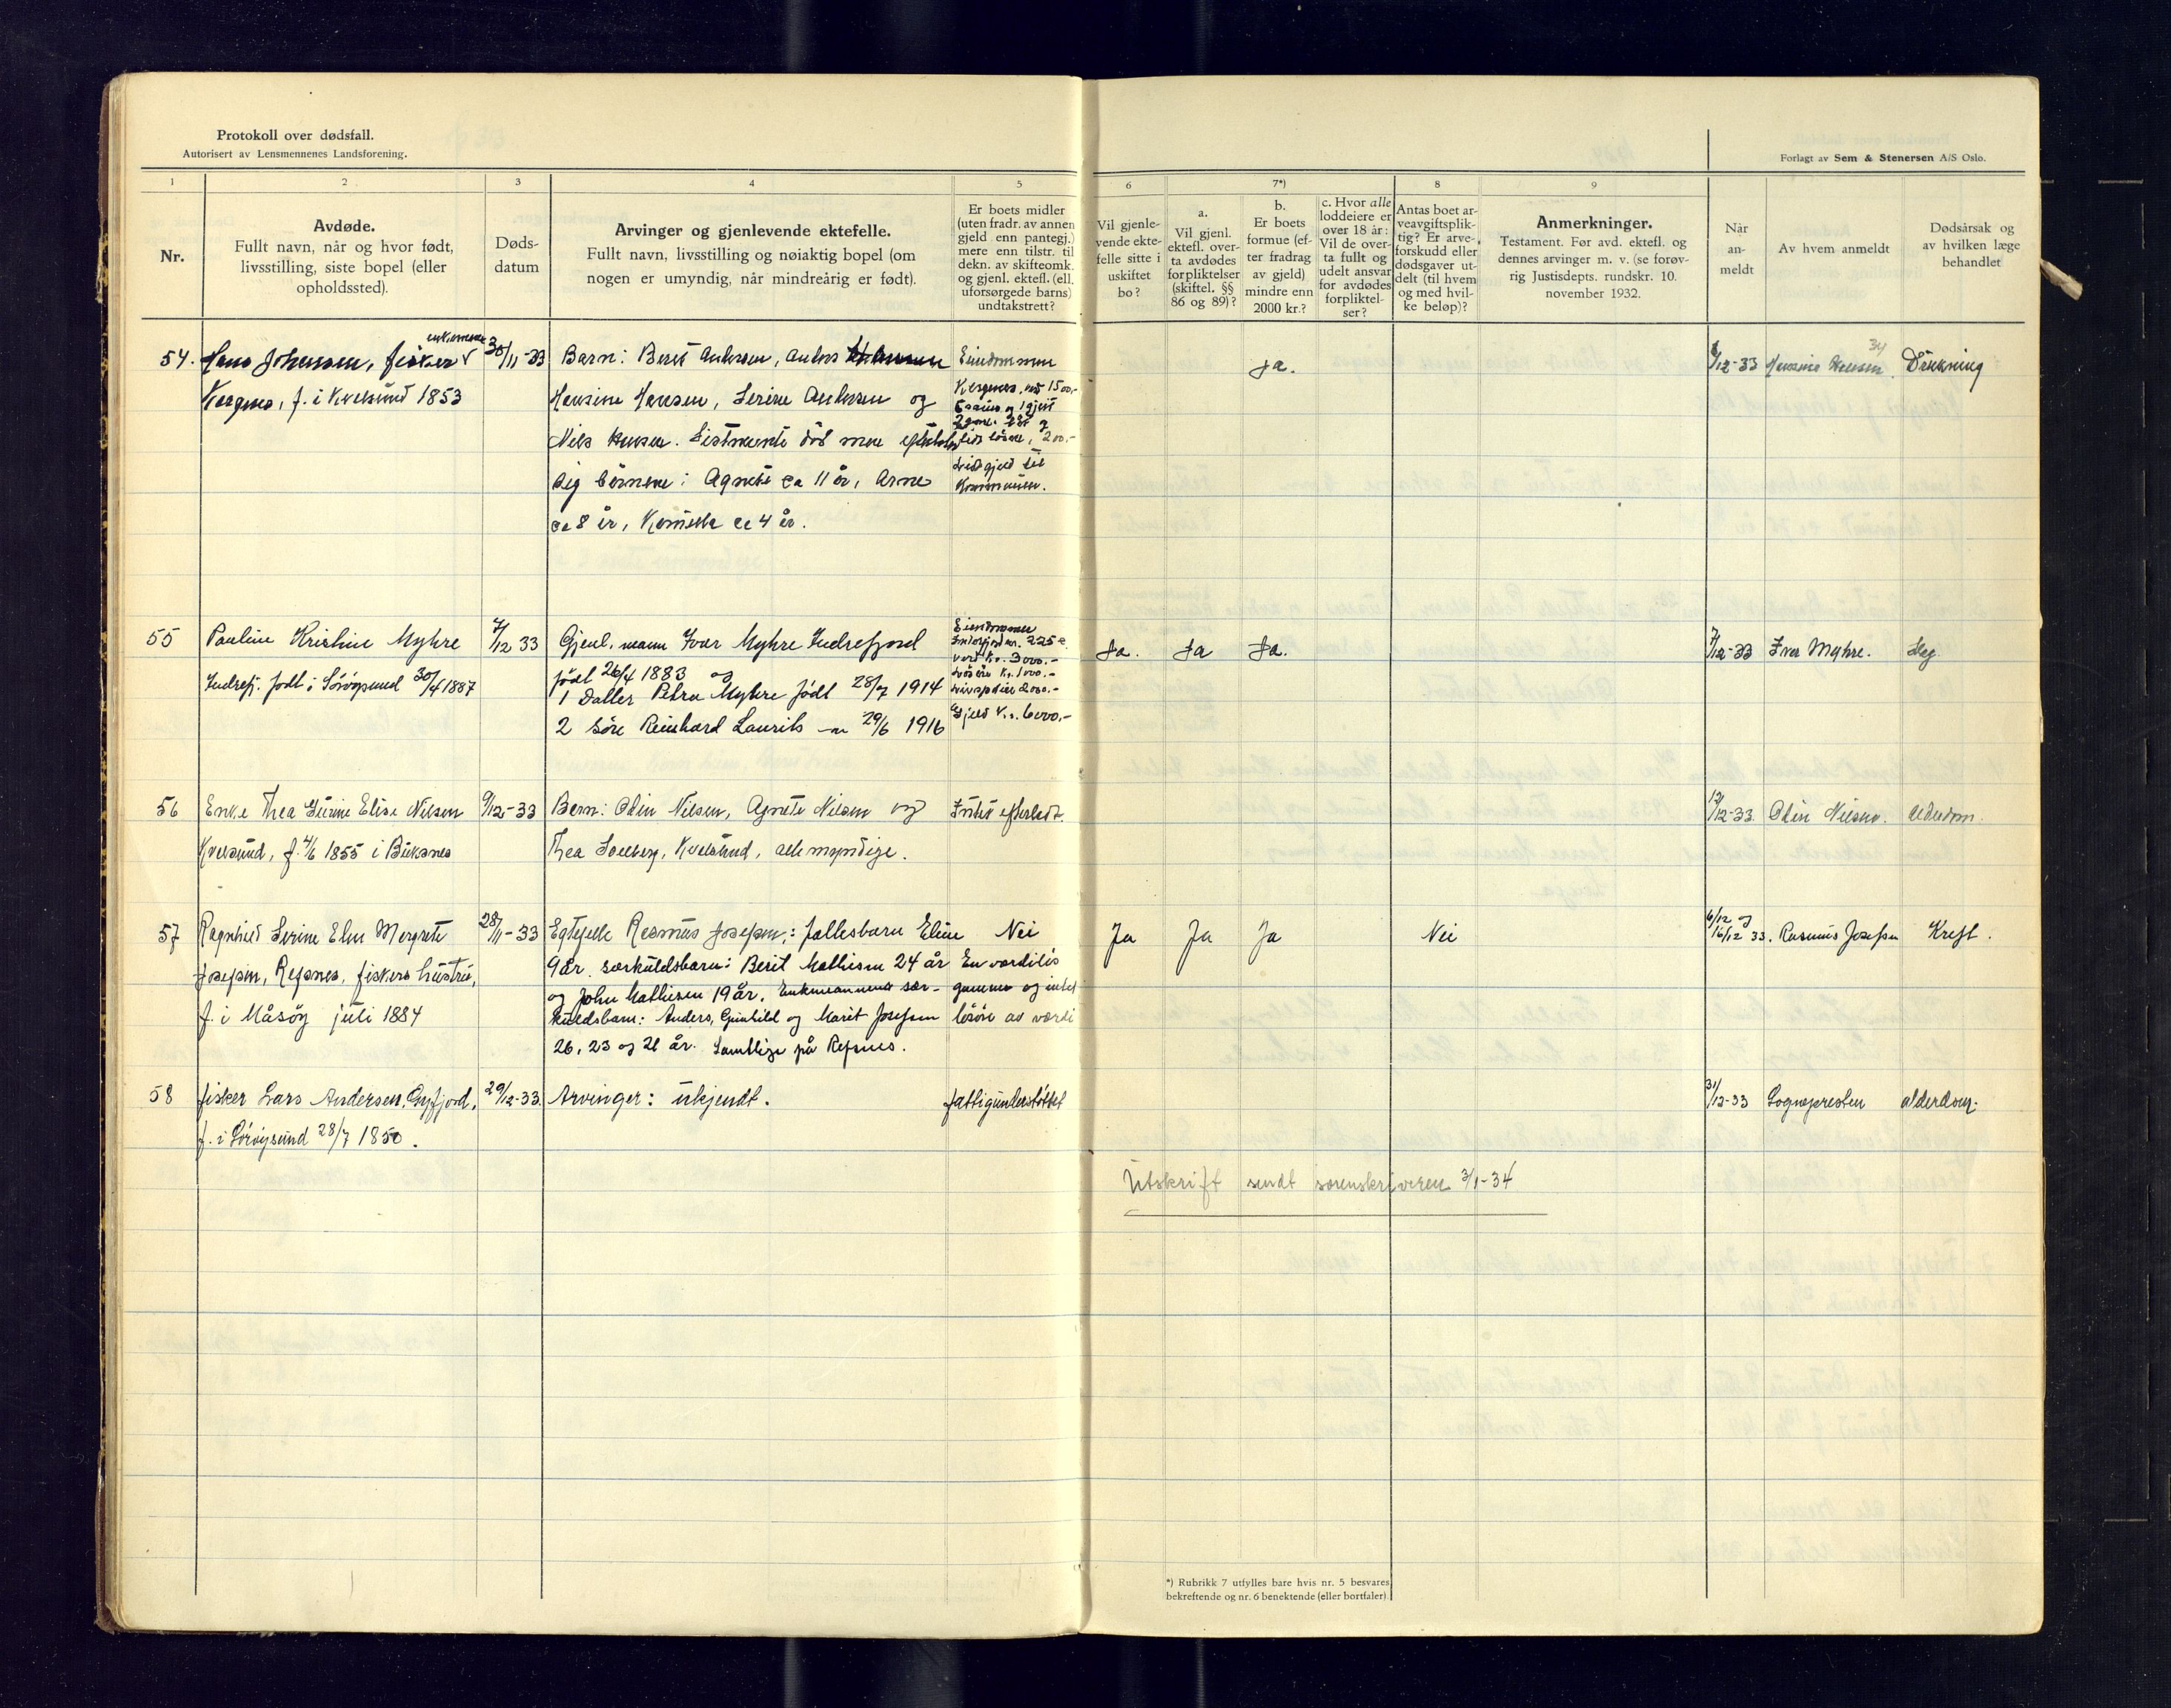 Protokoll over dødsfall.
Autorisert av Lensmennenes Landsforening.
Forlagt av Sem & Stenersen A/S Oslo.
1
2
3
4
5
6
7*)
8
9
Nr.
Avdøde.
Fullt navn, når og hvor født,
livsstilling, siste bopel (eller
opholdssted).
Døds-
datum
Arvinger og gjenlevende ektefelle.
Fullt navn, livsstilling og nøiaktig bopel (om
nogen er umyndig, når mindreårig er født).
Er boets midler
(uten fradr. av annen
gjeld enn pantegj.)
mere enn tilstr. til
dekn. av skifteomk.
og gjenl. ektefl. (ell.
uforsørgede barns)
undtakstrett?
Vil gjenle-
vende ekte-
felle sitte i
uskiftet
bo?
a.
Vil gjenl.
ektefl. over-
ta avdødes
forpliktelser
(skiftel. §§
86 og 89)?
b.
Er boets
formue (ef-
ter fradrag
av gjeld)
mindre enn
2000 kr.?
c. Hvor alle
loddeiere er
over 18 år:
Vil de over-
ta fullt og
udelt ansvar
for avdødes
forpliktel-
ser?
Antas boet ar-
veavgiftsplik-
tig? Er arve-
forskudd eller
dødsgaver ut-
delt (til hvem
og med hvil-
ke beløp)?
Anmerkninger.
Testament. Før avd. ektefl. og
dennes arvinger m. v. (se forøv-
rig Justisdepts. rundskr. 10.
november 1932.
Når
an-
meldt
Av hvem anmeldt
Dødsårsak og
av hvilken læge
behandlet
54. Hans Johansen, fisker
f. i Kvalsund 1853
30/11-33
Barn: Berit Andersen, Anders
Hansine Hansen, Serine Andersen og
Nils Hansen. Sistnevnte død men efterlot
sig børnene: Agnete ca 11 år, Arne
ca 8 år, ca 4 år.
Eiendommen
1500,-
200.-
gjeld til
Kommunen.
Ja.
/12-33 Hansine Hansen. Drukning
34
55 Pauline Kristine Myhre
Indrefj. født i Sørøysund 30/4 1887
7/12 33
Gjenl. mann Ivar Myhre Indrefjord
født 26/4 1883 og
1 Datter Petra Myhre født 28/7 1914
2 Søn Reinhard Laurits 29/6 1916
Eiendommen
verd kr. 3000.-
Løsøre kr. 1000.-
2000.-
Gjeld Kr. 6000.-
Ja. Ja Ja.
7/12-33 Ivar Myhre. Slag.
56 Enke Thea Elise Nilsen
Kvalsund, f. 4/6 1855 i Buksnes
9/12-33
Barn: Odin Nilsen, Agnete Nilsen og
Thea Solberg, Kvalsund, alle myndige.
Intet efterladt.
12/12-33. Odin Nilsen. Alderdom.
57 Ragnhild Serine Elen Margrete
Josefsen, Refsnes, fiskers hustru,
f. i Måsøy juli 1884
28/11-33
Egtefelle Rasmus Josefsen; fallesbarn Eline
9 år. særkuldsbarn: Berit Mathisen 24 år
og John Mathisen 19 år. Enkemannens sær-
kuldsbarn: Anders, Gunhild og Marit Josefsen
26, 23 og 21 år. Samtlige på Refsnes.
Nei
En verdiløs
gamme og intet
løsøre av værdi
Ja Ja Ja Nei
6/12 og
16/12 33. Rasmus Josefsen Kreft.
58 fisker Lars Andersen,
f. i Sørøysund 28/7 1850.
29/12-33.
Arvinger: ukjendt.
fattigunderstøttet
31/12-33 Sognepresten alderdom.
Utskrift sendt sorenskriveren 3/1-34
*) Rubrikk 7 utfylles bare hvis nr. 5 besvares
bekreftende og nr. 6 benektende (eller bortfaler).